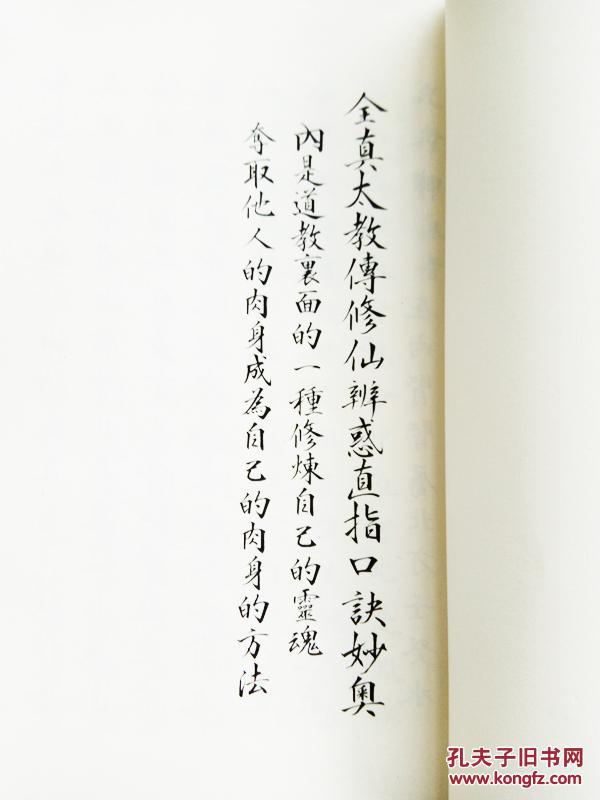 全真太教傳修仙辨惑直指口訣妙奧
內是道教裏面的一種修煉自己的靈魂
奪取他人的肉身成為自己的肉身的方法
孔夫子旧书网
www.kongfz.com